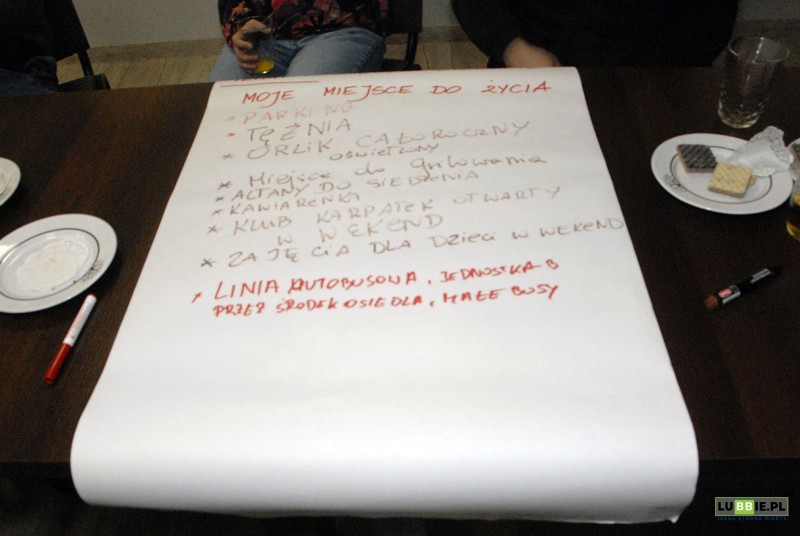 MOJE MIEJSCE DO ŻYCIA
* PARKING
* TĘŻNIA
* ORLIK CAŁOROCZNY
OŚWIETLONY
* Miejsce do grilowania
* ALTANY DO SIEDZENIA
* KAWIARENKA
* KLUB KARPATEK OTWARTY
W WEKEND
* ZAJĘCIA DLA DZIECI W WEKEND
* LINIA AUTOBUSOWA, JEDNOSTKA B
PRZEZ ŚRODEK OSIEDLA, MAŁE BUSY
LUBBIE.PL